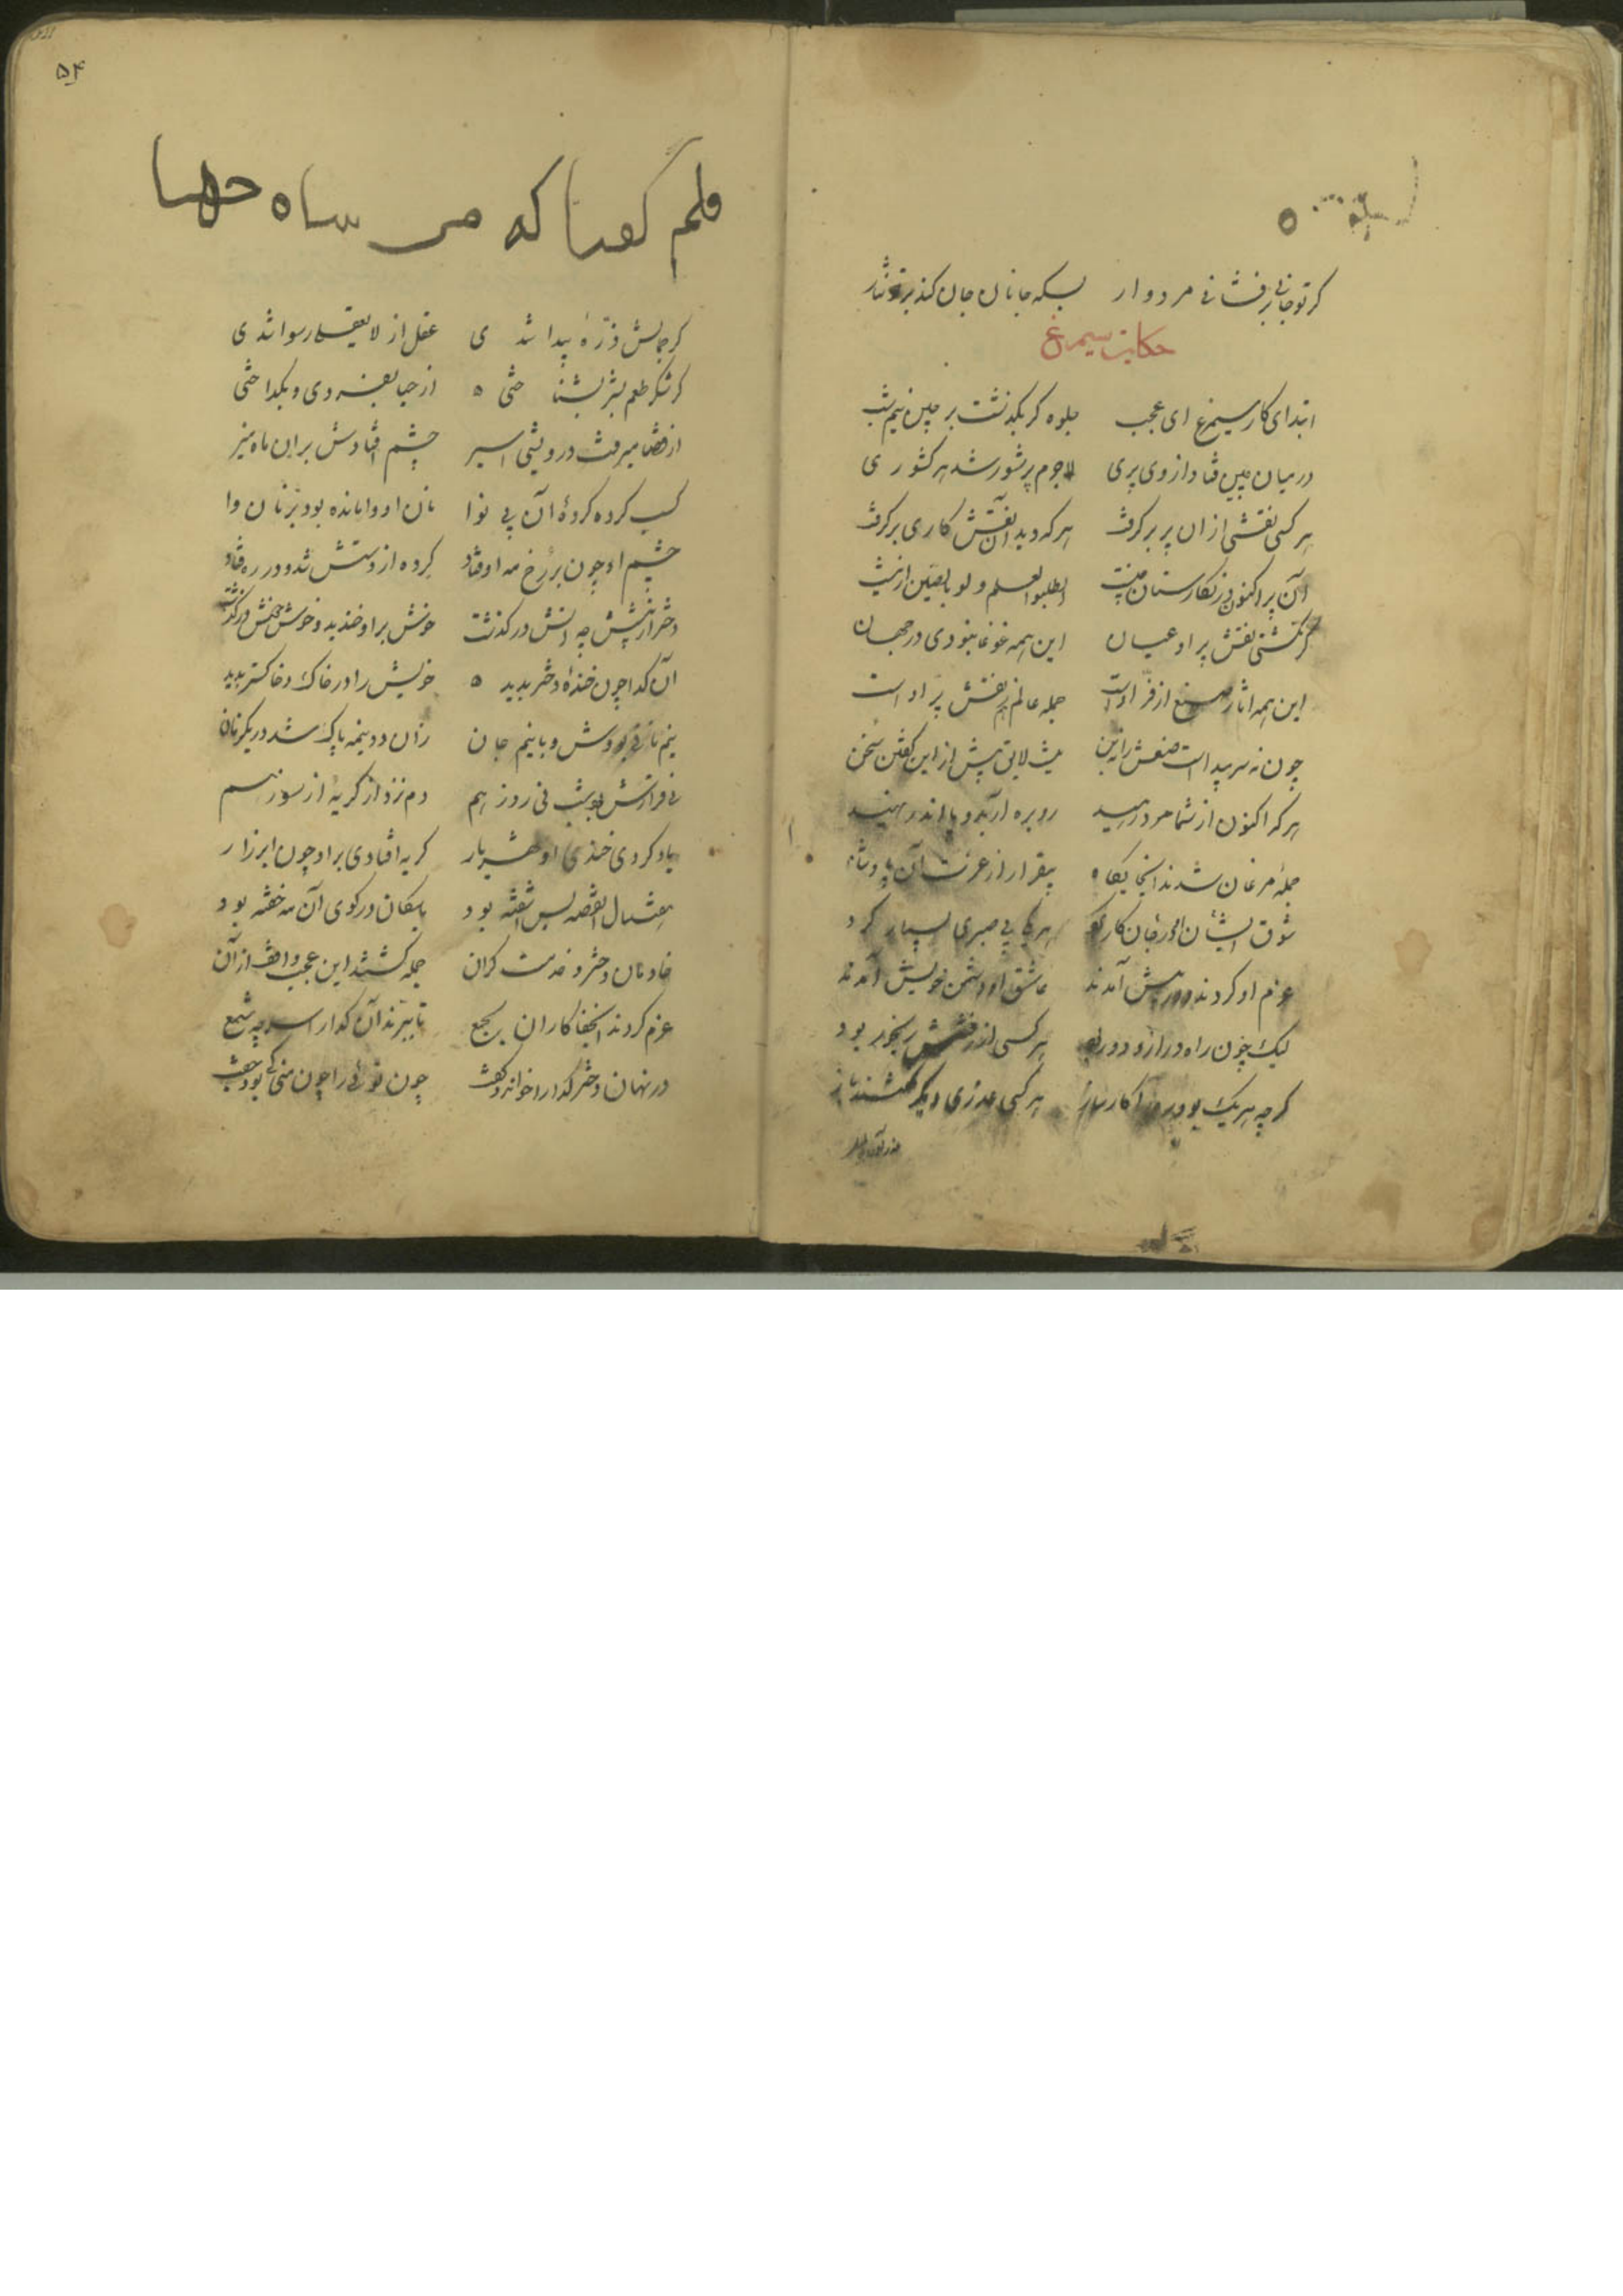 کر تو جانی برفشانی مردوار بسکه جانان جان کند بر تو نثار
حکایت سیمرغ
ابتدای کار سیمرغ ای عجب جلوه کر بکذشت بر چین نیم شب
در میان چین فتاد از وی پری لاجرم پر شور شد هر کشوری
هر کسی نقشی از ان پر بر کرفت هر که دید آن نقش کاری بر کرفت
آن پر اکنون در نکارستان چینست اطلبوا العلم و لو بالصین ازینست
کر نکشتی نقش پر او عیان این همه غوغا نبودی در جهان
این همه اثار صنع از فر اوست جمله عالم نقش پر اوست
چون نه سر پیداست وصفش را نه بن نیست لایق بیش از این کفتن سخن
هر که اکنون از شما مرد رهید رو بره آرید و پا اندر نهید
جمله مرغان شدند انجایکاه بیقرار از عزت آن پادشاه
شوق ایشان در جان کار کرد هر یکی بی صبری بسیار کرد
عزم او کردند و در پیش آمدند عاشق او دشمن خویش آمدند
لیک چون راه دراز و دور بود هر کسی از رفتنش رنجور بود
کر چه هر یک بود ره را کار ساز هر کسی عذری دیکر کفتند باز
۵۴
قلم کفتا که من شاه جها
کر جمالش ذرهٔ پیدا شدی عقل از لا یعقلی رسوا شدی
کر شکر طعم لبش بشناختی ه از حیا بفسردی و بکداختی
از قضا میرفت درویشی اسیر چشم افتادش بر این ماه منیر
کسب کرده کردهٔ آن بی نوا نان او وامانده بود بر نانوا
چشم او چون بر رخ مه اوفتاد کرده از دستش شد و در ره فتاد
دختر از پیشش چه آتش در کذشت خوش بر او خندید و خوش خوش در کذشت
آن کدا چون خندهٔ دختر بدید ه خویش را در خاک و خاکستر بدید
نیم نانی بودش و با نیم جان زان دو نیمه پاک شد در یکزمان
نی قرارش بود شب نی روز هم دم نزد از کریه از سوز هم
یاد کردی خندهٔ او شهریار کریه افتادی بر او چون ابر زار
هفت سال القصه بس اشفته بود با سکان در کوی آن مه خفته بود
خادمان دختر و خدمت کران جمله کشتند این عجب واقف از آن
عزم کردند انجفا کاران بجمع تا ببرند آن کدا را سر چه شمع
در نهان دختر کدا را خواند و کفت چون توئی را چون منی کی بود جفت